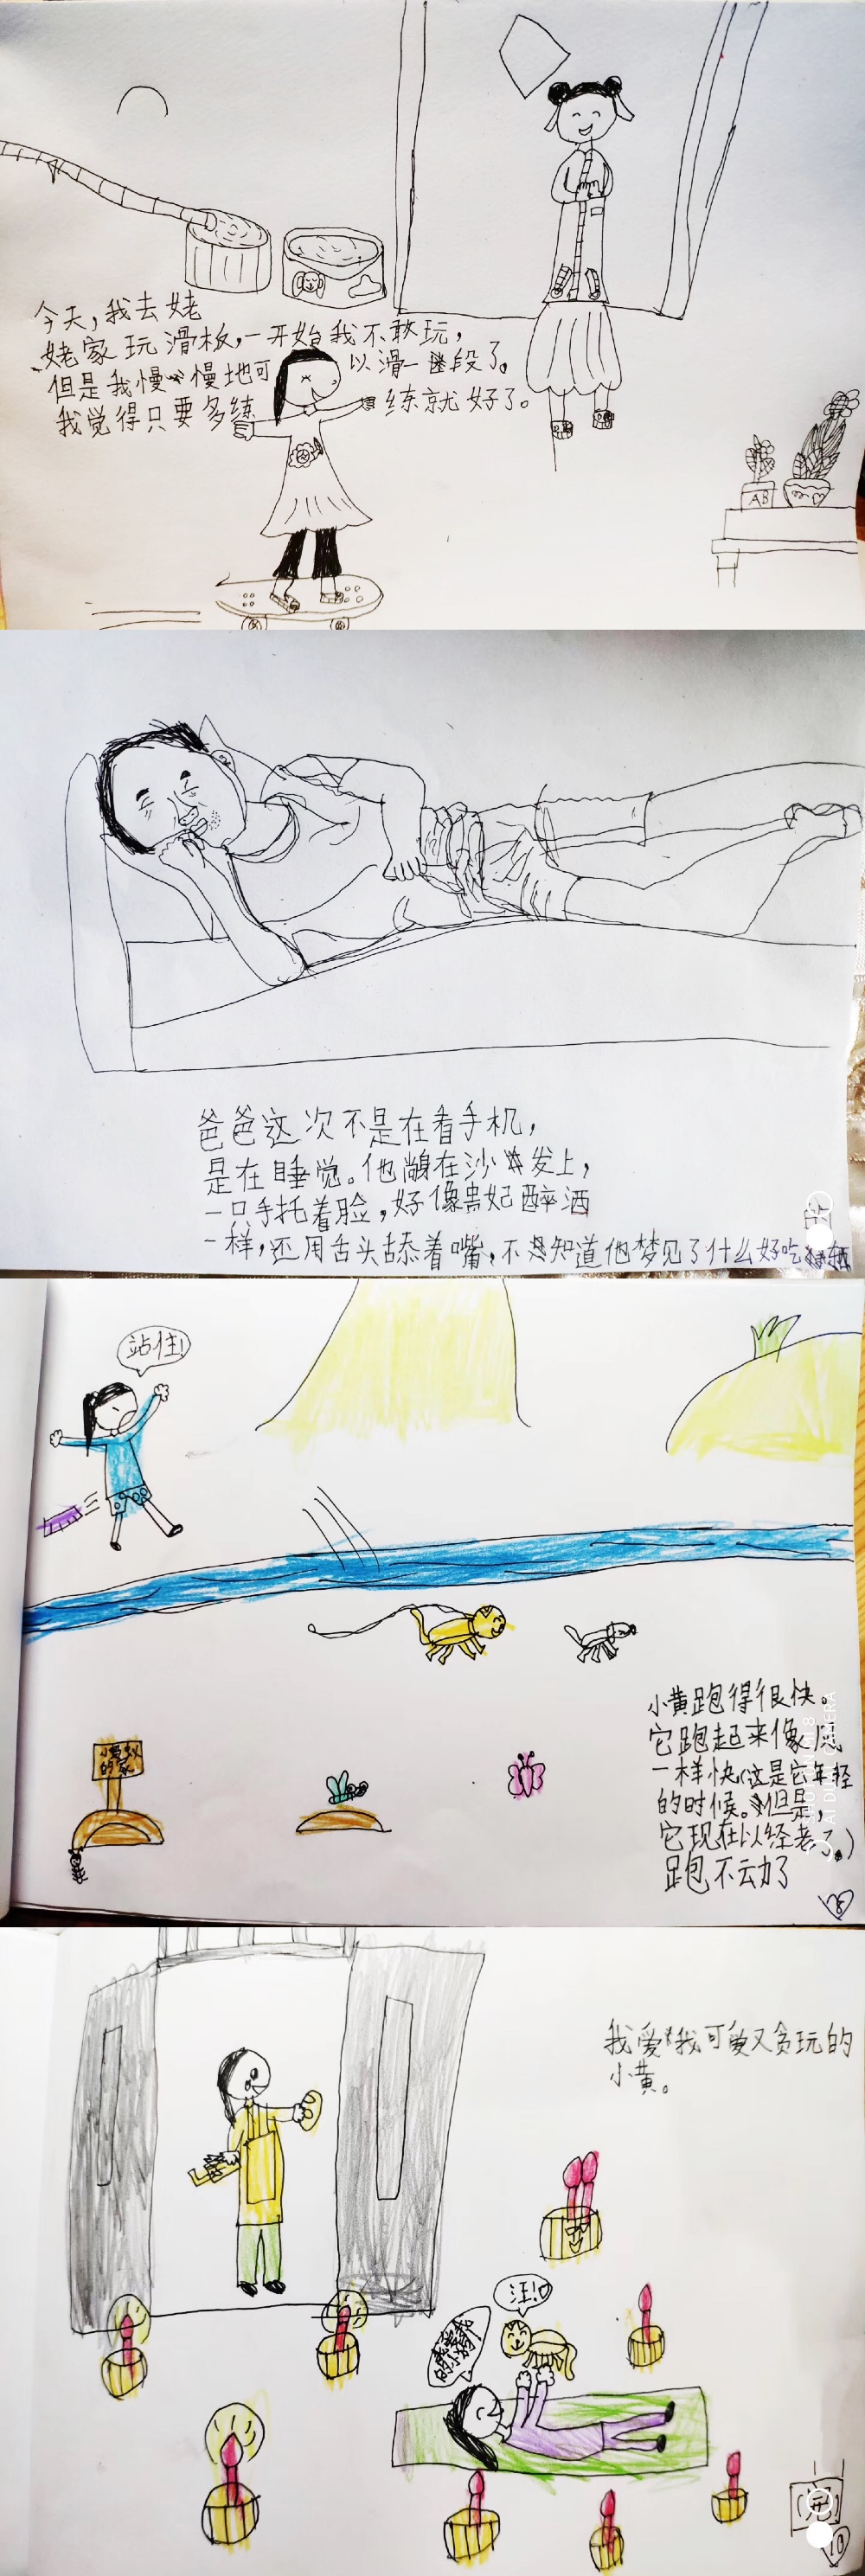 今天,我去姥
姥家玩滑板,一开始我不敢玩,
但是我慢慢地可以滑一段了。
我觉得只要多练练就好了。
AB
爸爸这次不是在看手机,
是在睡觉。他躺在沙发上,
一只手托着脸,好像贵妃醉酒
一样,还用舌头舔着嘴,不知道他梦见了什么好吃
站住!
小黄跑得很快。
它跑起来像风
一样快(这是它年轻
的时候。但是,
它现在以经老了。)
跑不动了
的家
AI DUAL CAMERA
我爱我可爱又贪玩的
小黄。
汪!
(完)
10